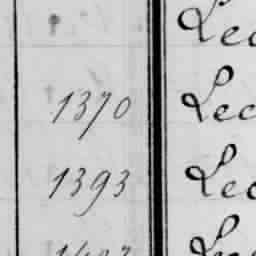 Lec
1370 Lec
1393 Lec